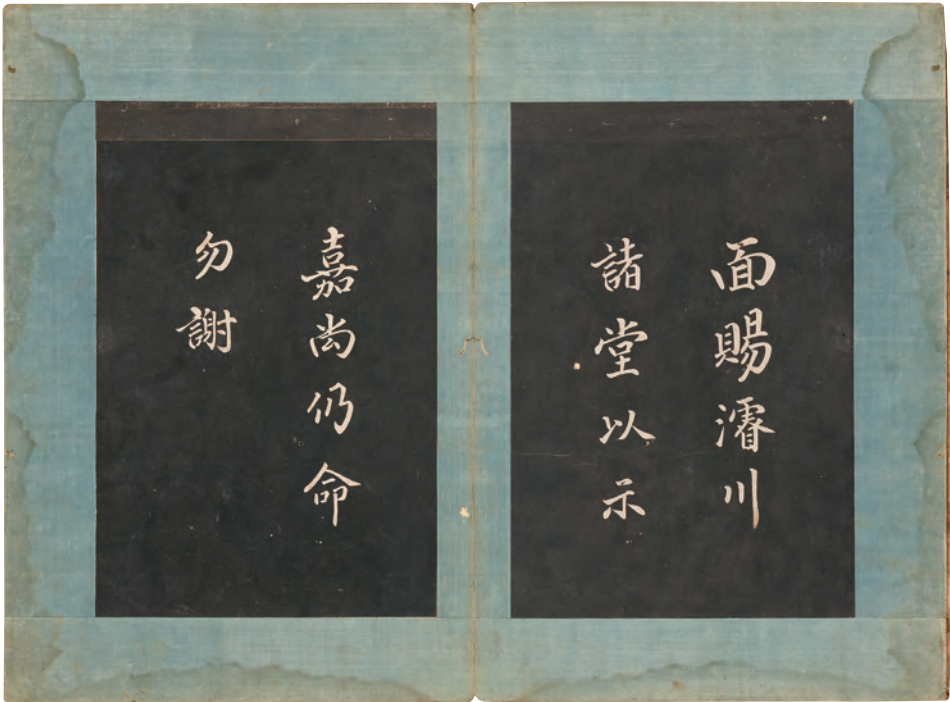 面賜濬川
諸堂以示
嘉尚仍命
勿謝